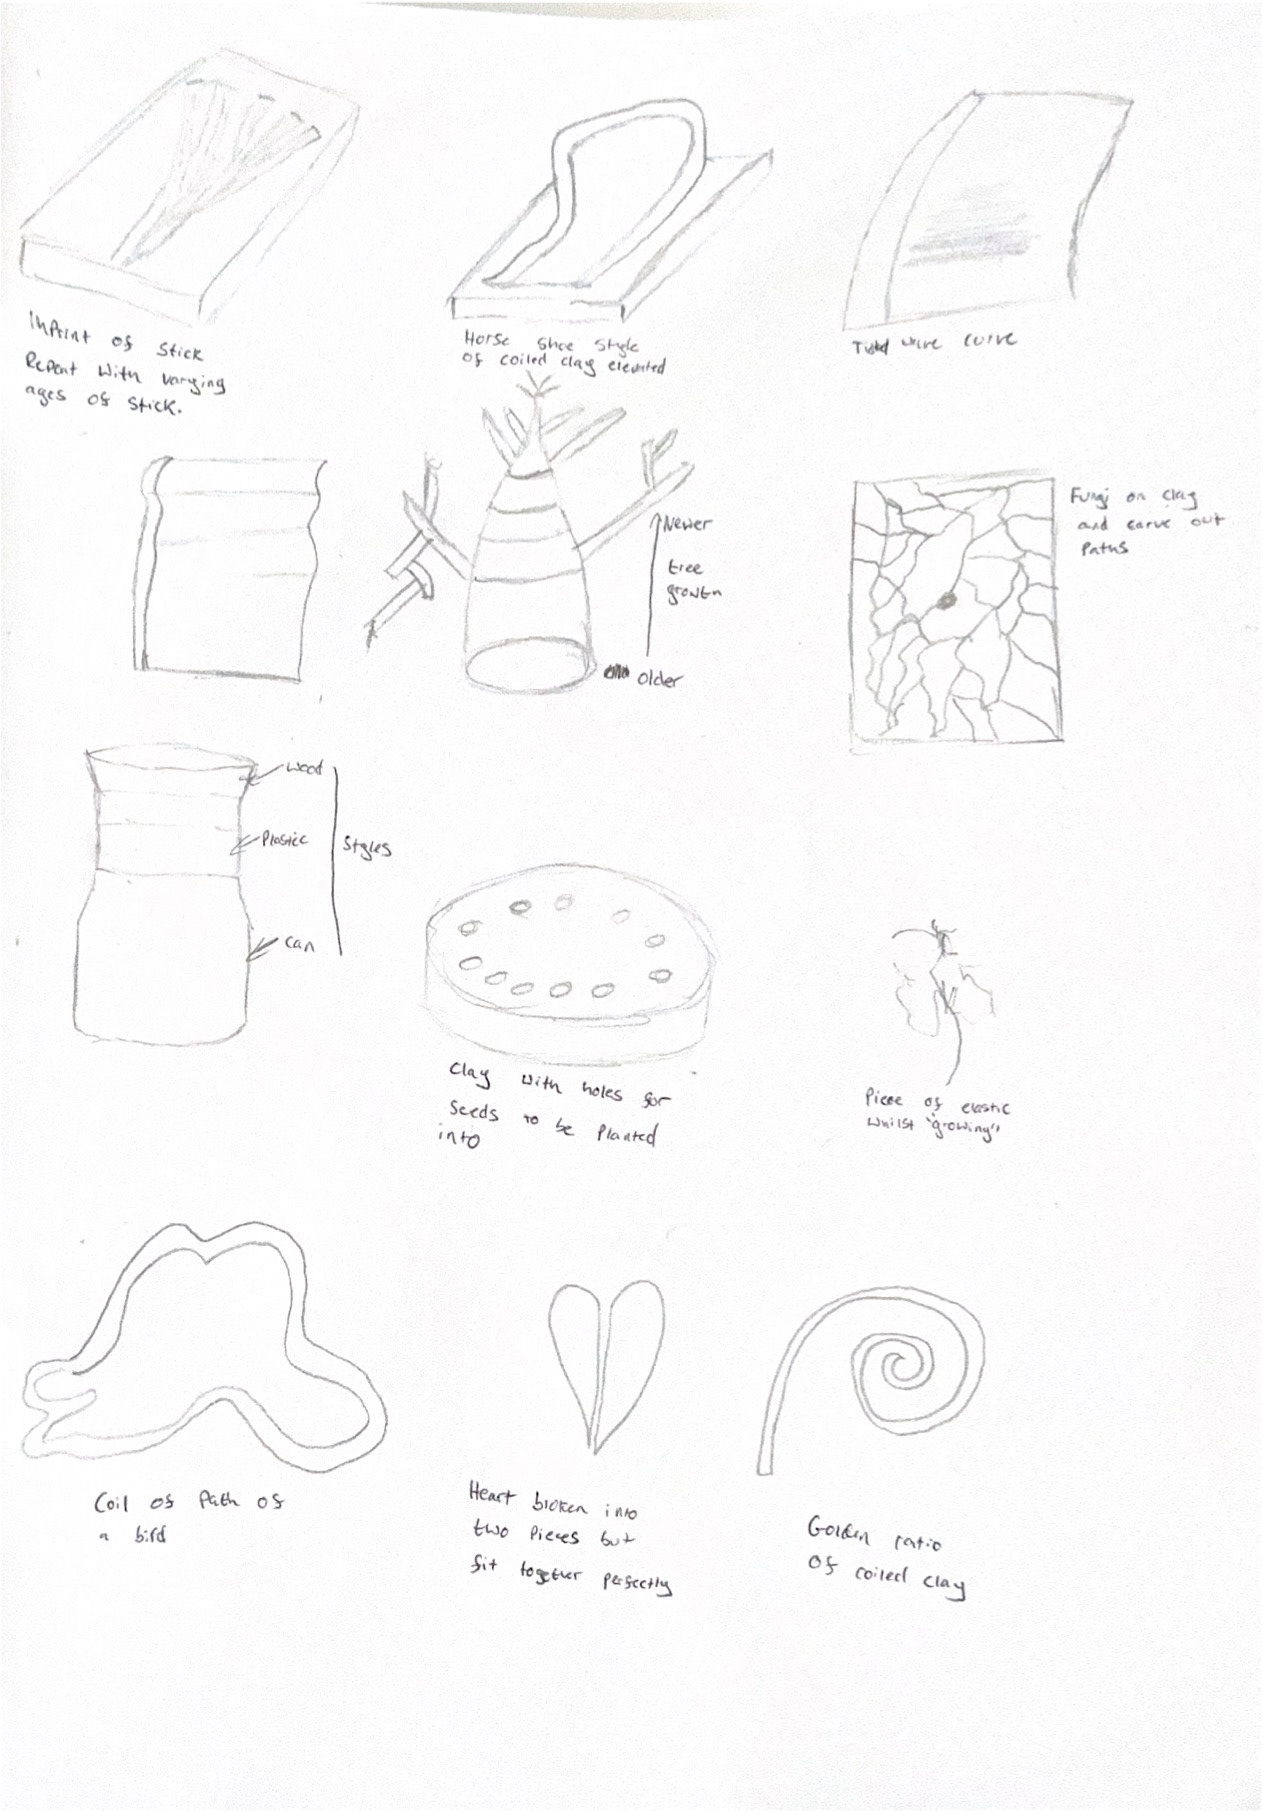 Imprint of stick
Repeat with varying
ages of stick.
Horse shoe style
of coiled clay elevated
curve
Newer
tree
growth
older
Fungi on clay
and carve out
paths
wood
Plastic
can
Styles
Clay with holes for
seeds to be planted
into
Piece of elastic
whilst "growing"
Coil of path of
a bird
Heart broken into
two pieces but
fit together perfectly
Golden ratio
of coiled clay